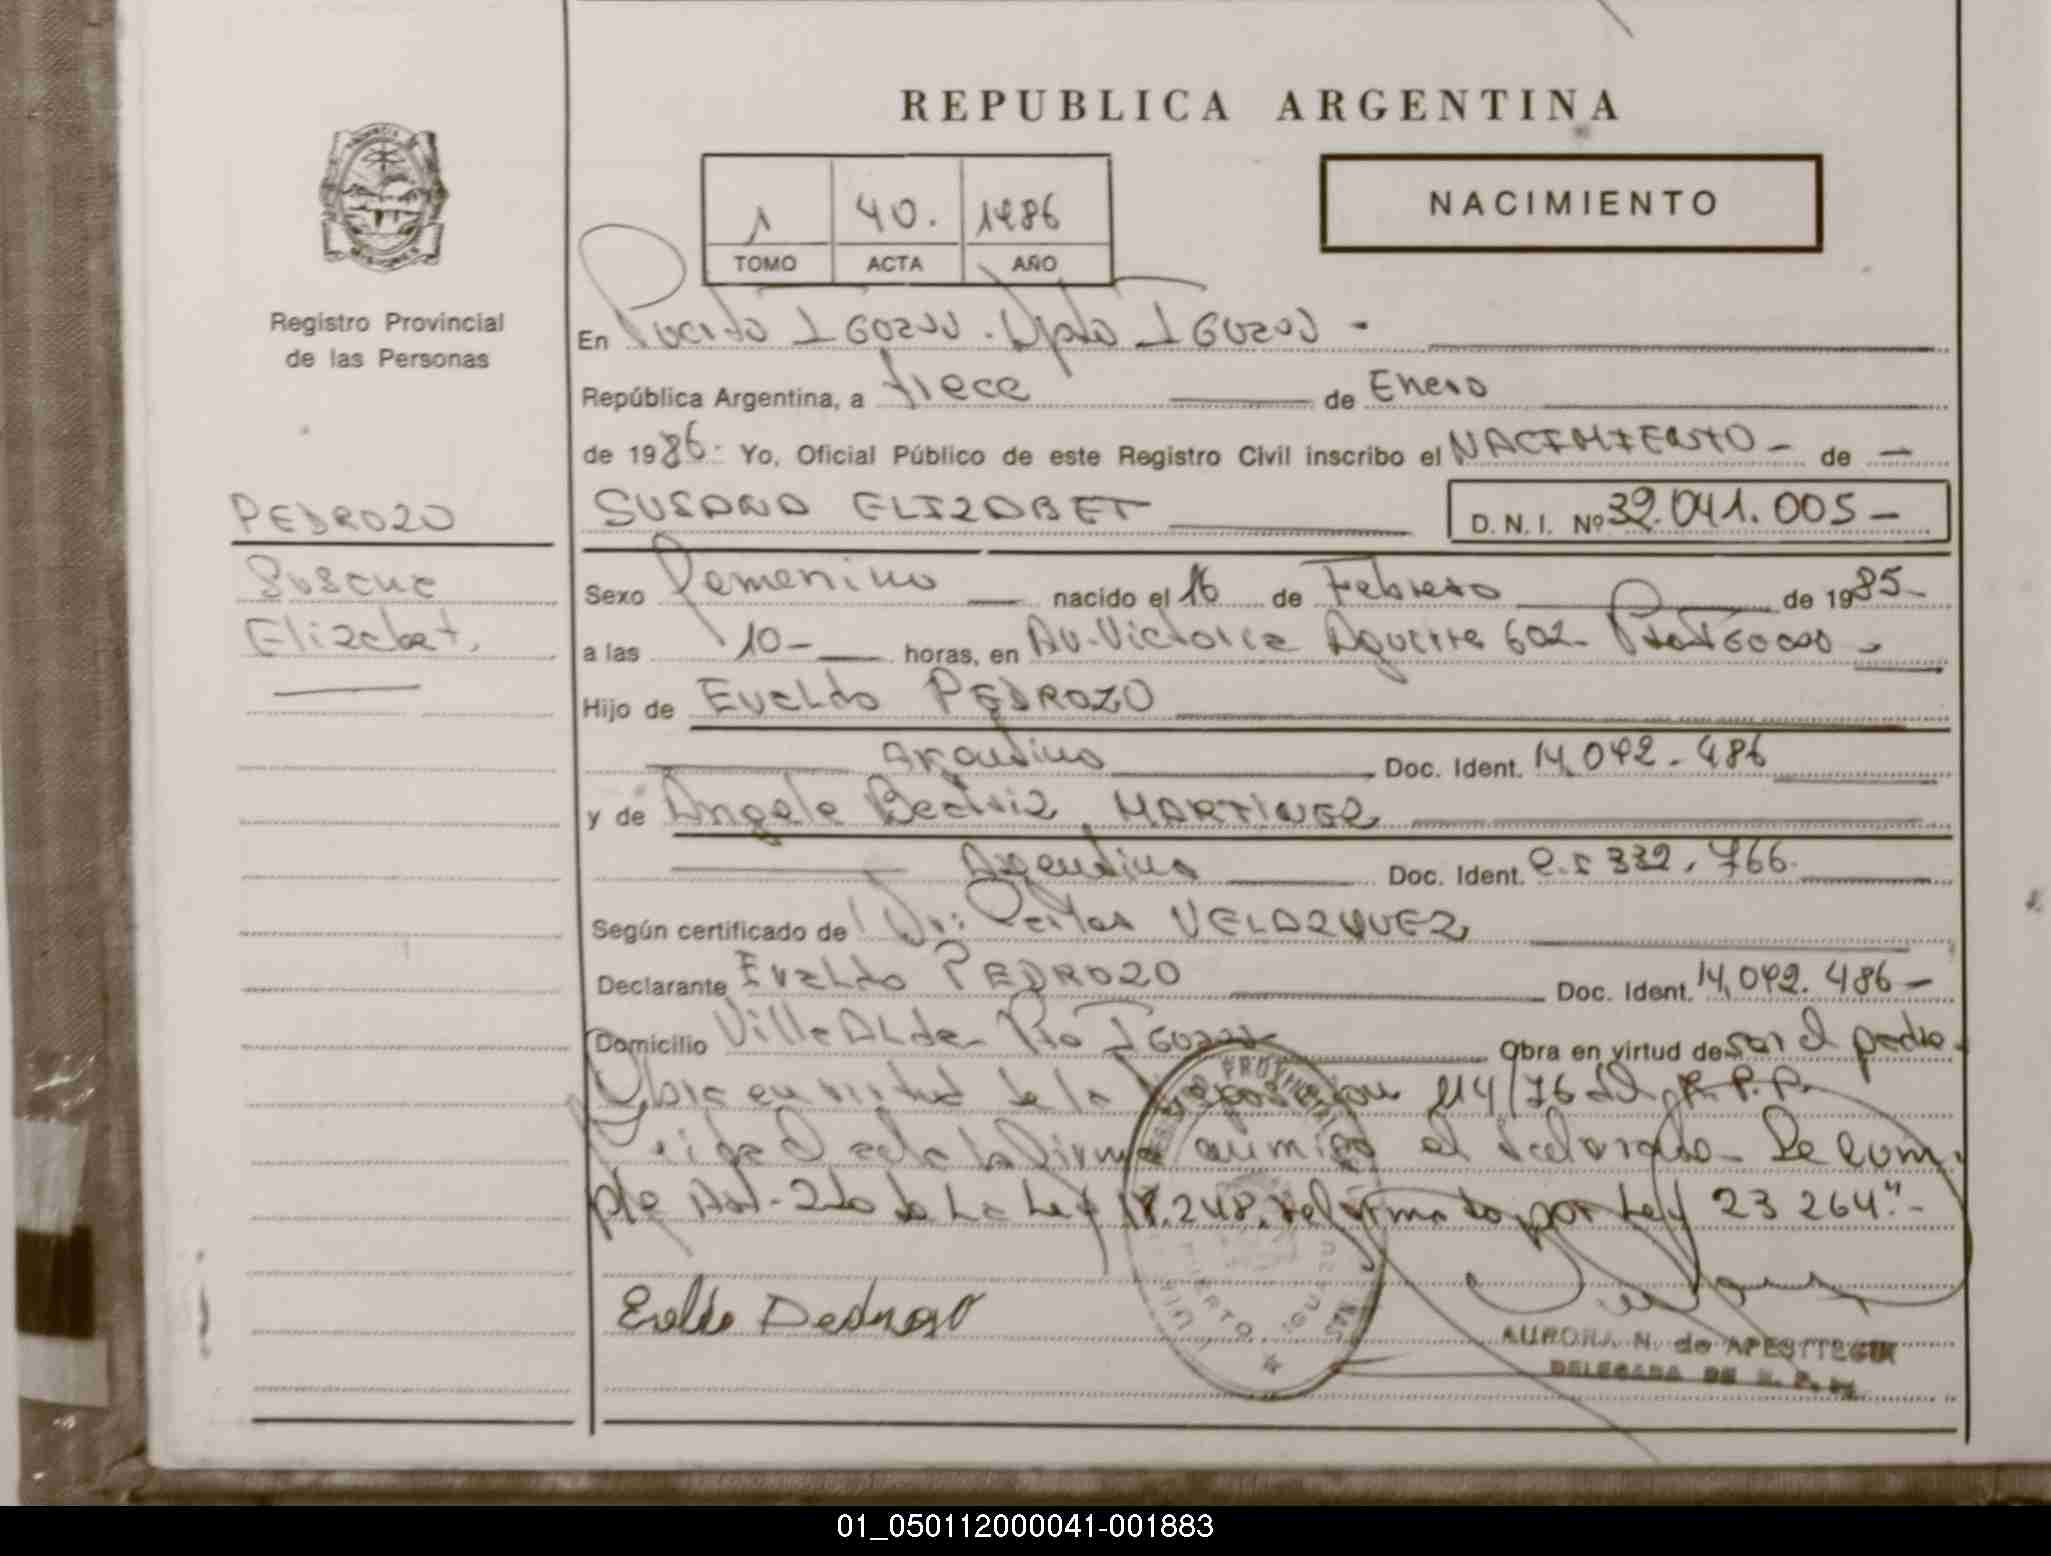 REPUBLICA ARGENTINA
NACIMIENTO
1 40. 1986
TOMO ACTA AÑO
PROVINCIA
MISIONES
Registro Provincial
de las Personas
En Puerto IGUAZU. Dpto IGUAZU -
República Argentina, a trece de Enero
de 1986- Yo, Oficial Público de este Registro Civil inscribo el NACIMIENTO - de -
PEDROZO
SUSANA ELIZABET
D. N. I. Nº 32.041.005-
Susana
Elizabet.
Sexo Femenino nacido el 16 de Febrero de 1985-
a las 10- horas, en Av. Victoria Aguirre 602- Pto IGUAZU -
Hijo de Evaldo PEDROZO
Argentino Doc. Ident. 14.042.486
y de Angela Beatriz MARTINEZ
Argentina Doc. Ident. 332.766.
Según certificado de Dr: Carlos VELAZQUEZ
Declarante Evaldo PEDROZO Doc. Ident. 14.042.486-
Domicilio Villa Alta- Pto IGUAZU Obra en virtud de ser el padre.
Obra en virtud de la Disposicion 114/76 del R.P.P.
el acta la firma conmigo el declarante- Se cum-
ple Art- 2do de La Ley 18.248. reformado por Ley 23 264".-
Evaldo Pedrozo
PUERTO IGUAZU
AURORA N. de APESTEGUI
DELEGADA DE R. P. P.
01_050112000041-001883